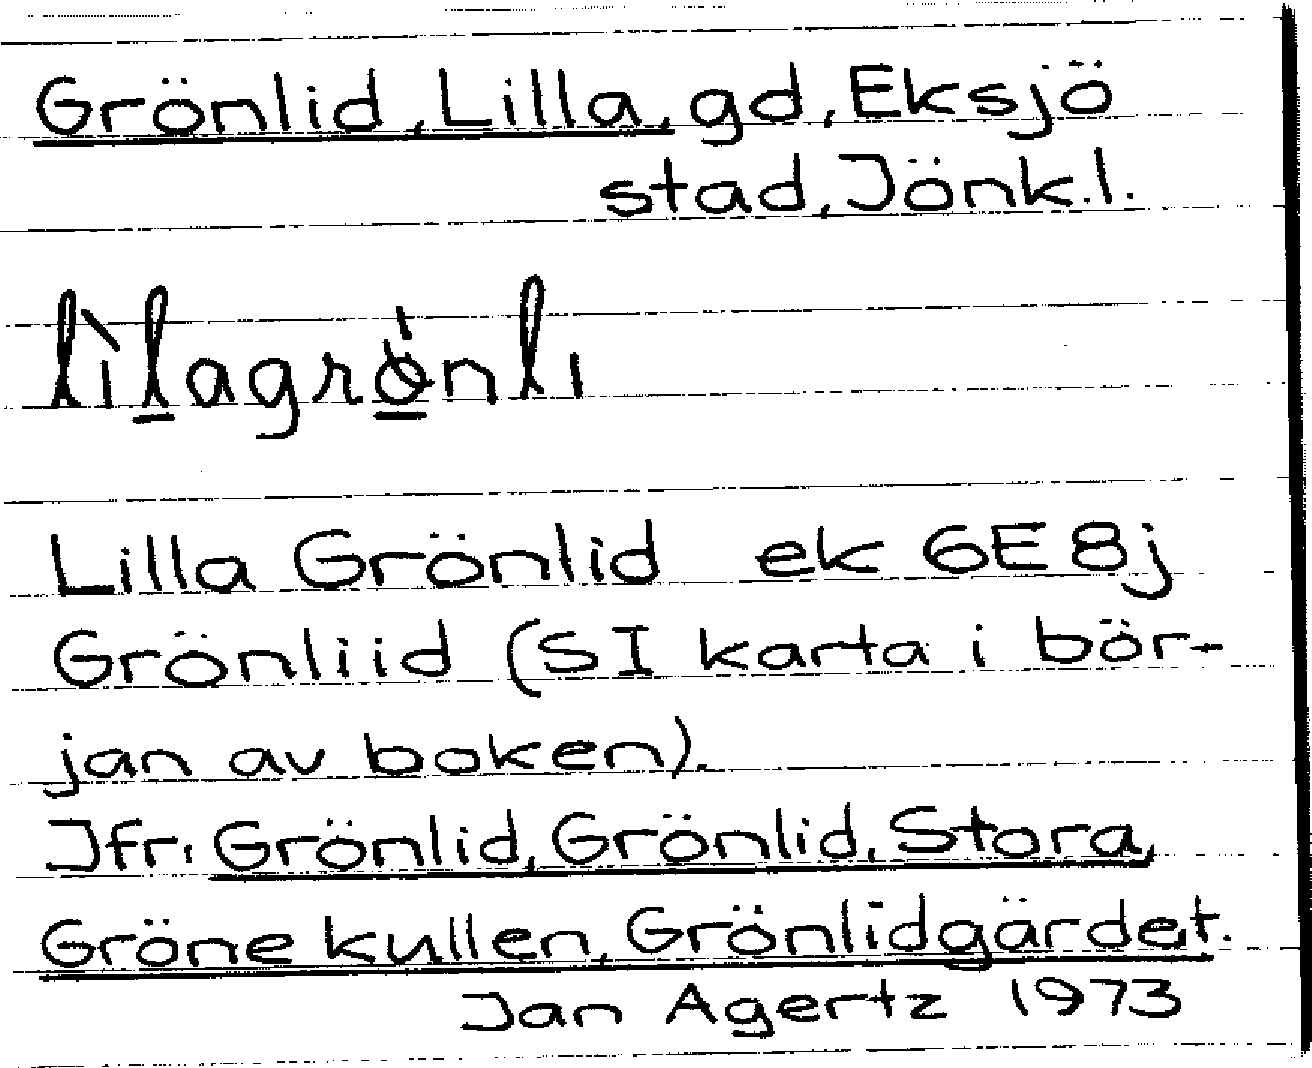 Grönlid, Lilla, gd, Eksjö
stad, Jönk.l.
lìl̲agrö̲́nli
Lilla Grönlid ek 6E8j
Grönliid (SI karta i bör-
jan av boken).
Jfr: Grönlid, Grönlid, Stora,
Gröne kullen, Grönlidgärdet.
Jan Agertz 1973